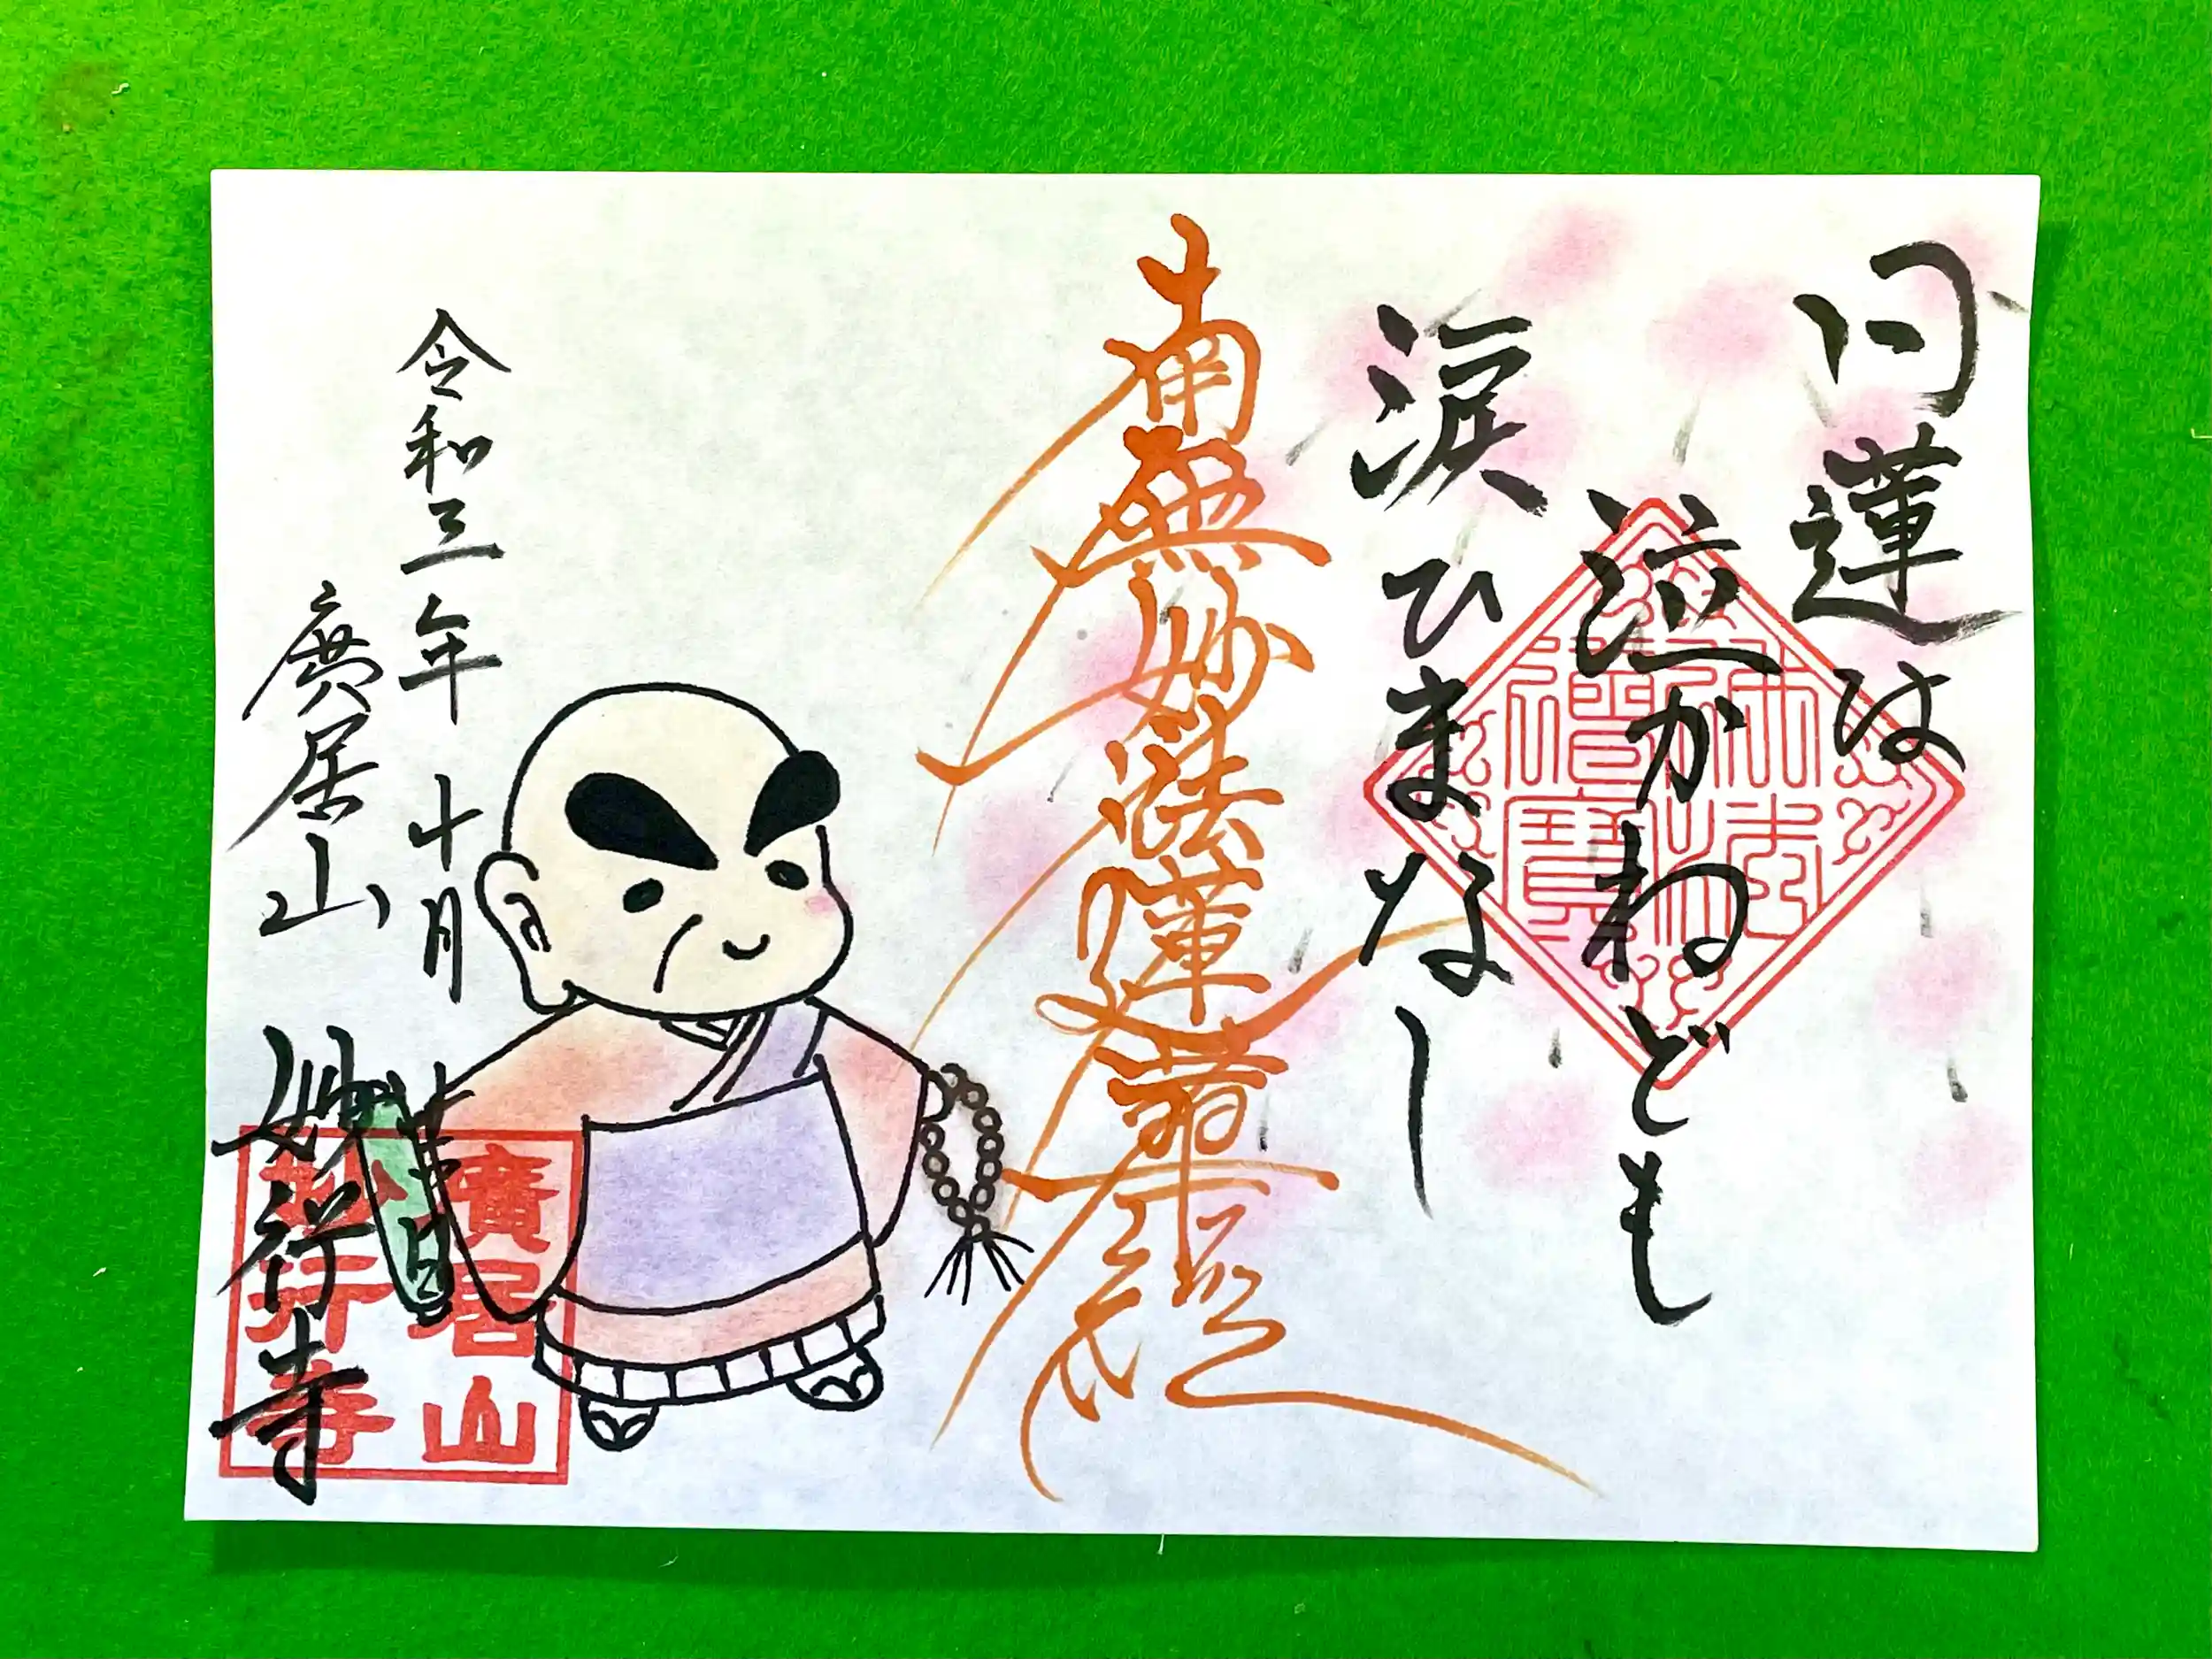 日蓮は
泣かねども
涙ひまなし
佛法
僧寶
南無妙法蓮華經
令和三年十月
廣居山
妙行寺
廣居山
妙行寺